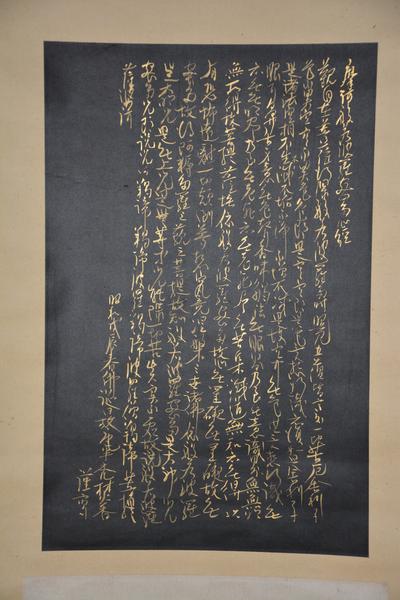 摩訶般若波羅蜜多心経
観自在菩薩行深般若波羅蜜多時照見五蘊皆空度一切苦厄舎利子
色不異空空不異色色即是空空即是色受想行識亦復如是舎利子
是諸法空相不生不滅不垢不浄不増不減是故空中無色無受想行識無
眼耳鼻舌身意無色声香味触法無眼界乃至無意識界無無明
亦無無明尽乃至無老死亦無老死尽無苦集滅道無智亦無得以
無所得故菩提薩埵依般若波羅蜜多故心無罣礙無罣礙故無
有恐怖遠離一切顛倒夢想究竟涅槃三世諸仏依般若波羅
蜜多故得阿耨多羅三藐三菩提故知般若波羅蜜多是大神呪
是大明呪是無上呪是無等等呪能除一切苦真実不虚故説般若波羅
蜜多呪即説呪曰羯諦羯諦波羅羯諦波羅僧羯諦菩提
薩婆訶
昭和戊辰春
謹書